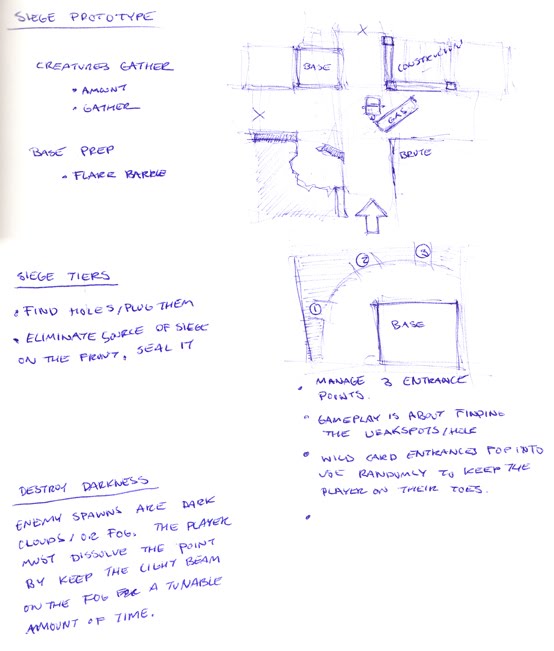 SIEGE PROTOTYPE
CREATURES GATHER
• AMOUNT
• GATHER
BASE PREP
• FLARE BARRLE
X
BASE
CONSTRUCTION
X
GAS
BRUTE
SIEGE TIERS
• FIND HOLES/PLUG THEM
• ELIMINATE SOURCE OF SIEGE
ON THE FRONT, SEAL IT
1
2
3
BASE
• MANAGE 3 ENTRANCE
POINTS.
• GAMEPLAY IS ABOUT FINDING
THE WEAKSPOTS/HOLE
• WILD CARD ENTRANCES POP INTO
USE RANDOMLY TO KEEP THE
PLAYER ON THEIR TOES.
•
DESTROY DARKNESS
ENEMY SPAWNS ARE DARK
CLOUDS/OR FOG. THE PLAYER
MUST DISSOLVE THE POINT
BY KEEP THE LIGHT BEAM
ON THE FOG FOR A TUNABLE
AMOUNT OF TIME.